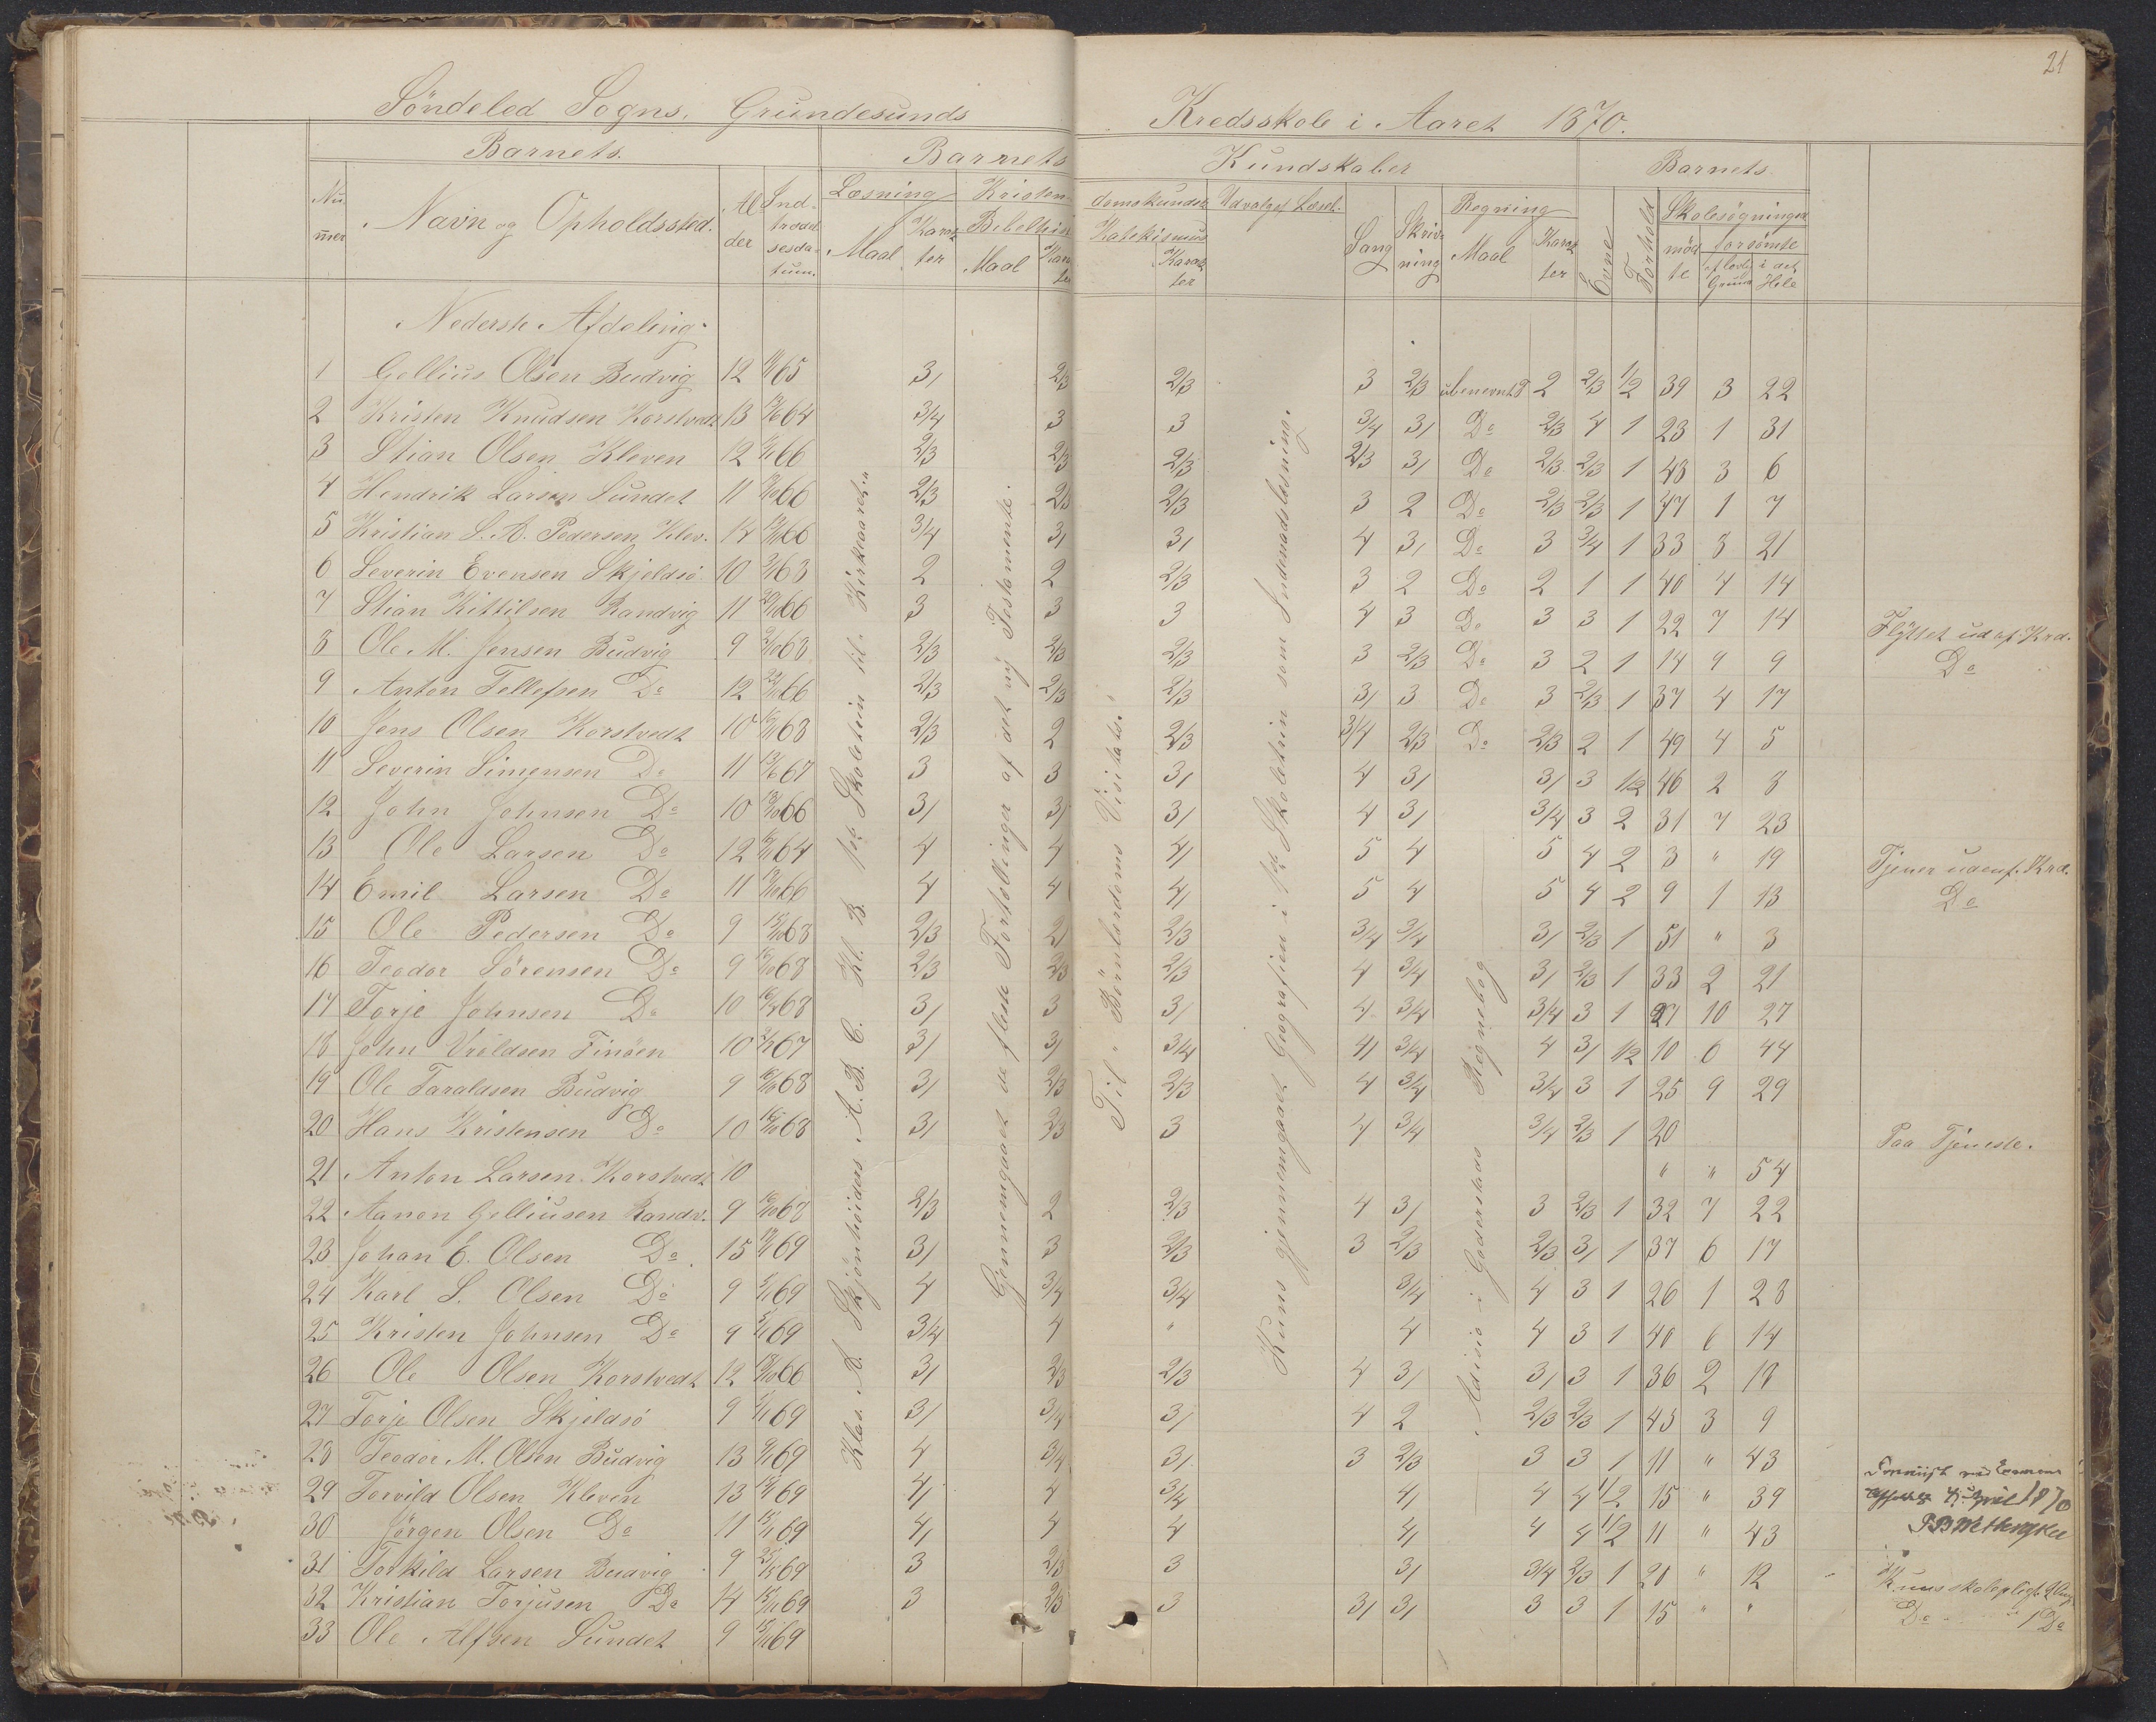 21
Söndeled Sogns. Grundesunds Kredsskole i Aaret 1870.
Barnets. Barnets Kundskaber Barnets
Nummer Navn og Opholdsstöd. Alder Indtrædelsesdatum. Læsning Maal Karakter Kristendomskundsk. Bibelhis Maal Karakter Katekismus Karakter Udvalget Læseb. Sang Skrivning Regning Maal Karakter Evne Forhold Skolesögningen mödte forsömte af lovlig Grund i det Hele
Nederste Afdeling.
1 Gellius Olsen Budvig 12 65 3/ 2/3 2/3 3 2/3 ubenevnt 2 2/3 1/2 39 3 22
2 Kristen Knudsen Korstvedt 13 64 3/4 3 3 3/4 3/ Do 2/3 4 1 23 1 31
3 Stian Olsen Kleven 12 66 2/3 2/3 2/3 2/3 3/ Do 2/3 2/3 1 48 3 6
4 Hendrik Larsen Sundet 11 66 2/3 2/3 2/3 3 2 Do 2/3 2/3 1 47 1 7
5 Kristian S. A. Pedersen Klev. 14 66 3/4 3/ 3/ 4 3/ Do 3 3/4 1 33 3 21
6 Severin Evensen Skjeldsö 10 63 2 2 2/3 3 2 Do 2 1 1 40 4 14
7 Stian Kittilsen Randvig 11 66 3 3 3 4 3 Do 3 3 1 22 7 14 Flyttet ud af Krd.
8 Ole M. Jensen Budvig 9 68 2/3 2/3 2/3 3 2/3 Do 3 2 1 14 9 9 Do
9 Anton Tellefsen Do 12 66 2/3 2/3 2/3 3/ 3 Do 3 2/3 1 37 4 17
10 Jens Olsen Korstvedt 10 68 2/3 2 2/3 3/4 2/3 Do 2/3 2 1 49 4 5
11 Severin Simensen Do 11 67 3 3 3/ 4 3/ 3/ 3 1/2 46 2 8
12 John Johnsen Do 10 66 3/ 3/ 3/ 4 3/ 3/4 3 2 31 7 23
13 Ole Larsen Do 12 64 4 4 4/ 5 4 5 4 2 3 " 19 Tjener udenf. Krd.
14 Emil Larsen Do 11 66 4 4 4/ 5 4 5 4 2 9 1 13 Do
15 Ole Pedersen Do 9 68 2/3 2/ 2/3 3/4 3/4 3/ 2/3 1 51 " 3
16 Teodor Sörensen Do 9 68 2/3 2/3 2/3 4 3/4 3/ 2/3 1 33 2 21
17 Torje Johnsen Do 10 68 3/ 3 3/ 4 3/4 3/4 3 1 27 10 27
18 John Vroldsen Finöen 10 67 3/ 3/ 3/4 4/ 3/4 4 3/ 1/2 10 6 44
19 Ole Taraldsen Budvig 9 68 3/ 2/3 2/3 4 3/4 3/4 3 1 25 9 29
20 Hans Kristensen Do 10 68 3/ 2/3 3 4 3/4 3/4 2/3 1 20 Paa Tjeneste.
21 Anton Larsen Korstvedt 10 " " 54
22 Aanon Gelliusen Randv. 9 68 2/3 2 2/3 4 3/ 3 2/3 1 32 7 22
23 Johan E. Olsen Do 15 69 3/ 3 2/3 3 2/3 2/3 3/ 1 37 6 17
24 Karl S. Olsen Do 9 69 4 3/4 3/4 3/4 4 3 1 26 1 28
25 Kristen Johnsen Do 9 69 3/4 4 " 4 4 3 1 40 6 14
26 Ole Olsen Korstvedt 12 66 3/ 2/3 2/3 4 3/ 3/ 3 1 36 2 18
27 Torje Olsen Skjeldsö 9 69 3/ 3/4 3/ 4 2 2/3 2/3 1 45 3 9
28 Teodor M. Olsen Budvig 13 69 4 3/4 3/ 3 2/3 3 3 1 11 " 43
29 Torvild Olsen Kleven 13 69 4/ 4 3/4 4/ 4 4 1/2 15 " 39
30 Jörgen Olsen Do 11 69 4/ 4 4 4/ 4 4 1/2 11 " 43
31 Torkild Larsen Budvig 9 69 3 2/3 3 3/ 3/4 2/3 1 20 " 12 Kuns skolepligt.
32 Kristian Torjusen Do 14 69 3 2/3 3 3/ 3/ 3 3 1 15 " " Do 1 Do
33 Ole Alfsen Sundet 9 69
Klas. A. Skjönhöiders A. B. C. Kl. B. 1ste Skoletrin til Kirkeaaret.
Gennemgaaet de fleste Fortællinger af det ny Testamente.
Til "Börnlærdoms Visitats."
Kuns gjennemgaaet Geografien i 1ste Skoletrin som Indenadslæsning.
Adisio i Goderstads Regnebog
Fremvist ved Examen
4de April 1870